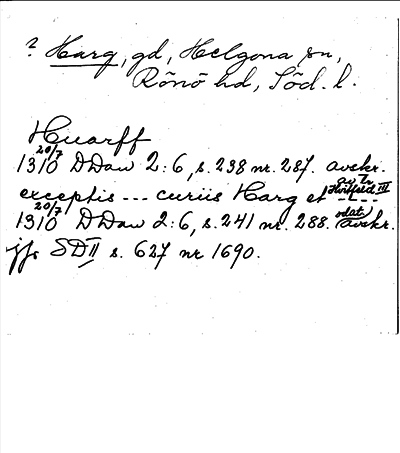 ? Harg, gd, Helgona sn,
Rönö hd, Söd. l.
Huarff
20/7
1310 DDan 2:6, s. 238 nr. 287. avskr.
av Tr.
Hvitfeld III
exceptis --- curiis Harg et -- L --
20/7
odat.
1310 DDan 2:6, s. 241 nr. 288. avskr.
jfr SD II s. 627 nr 1690.